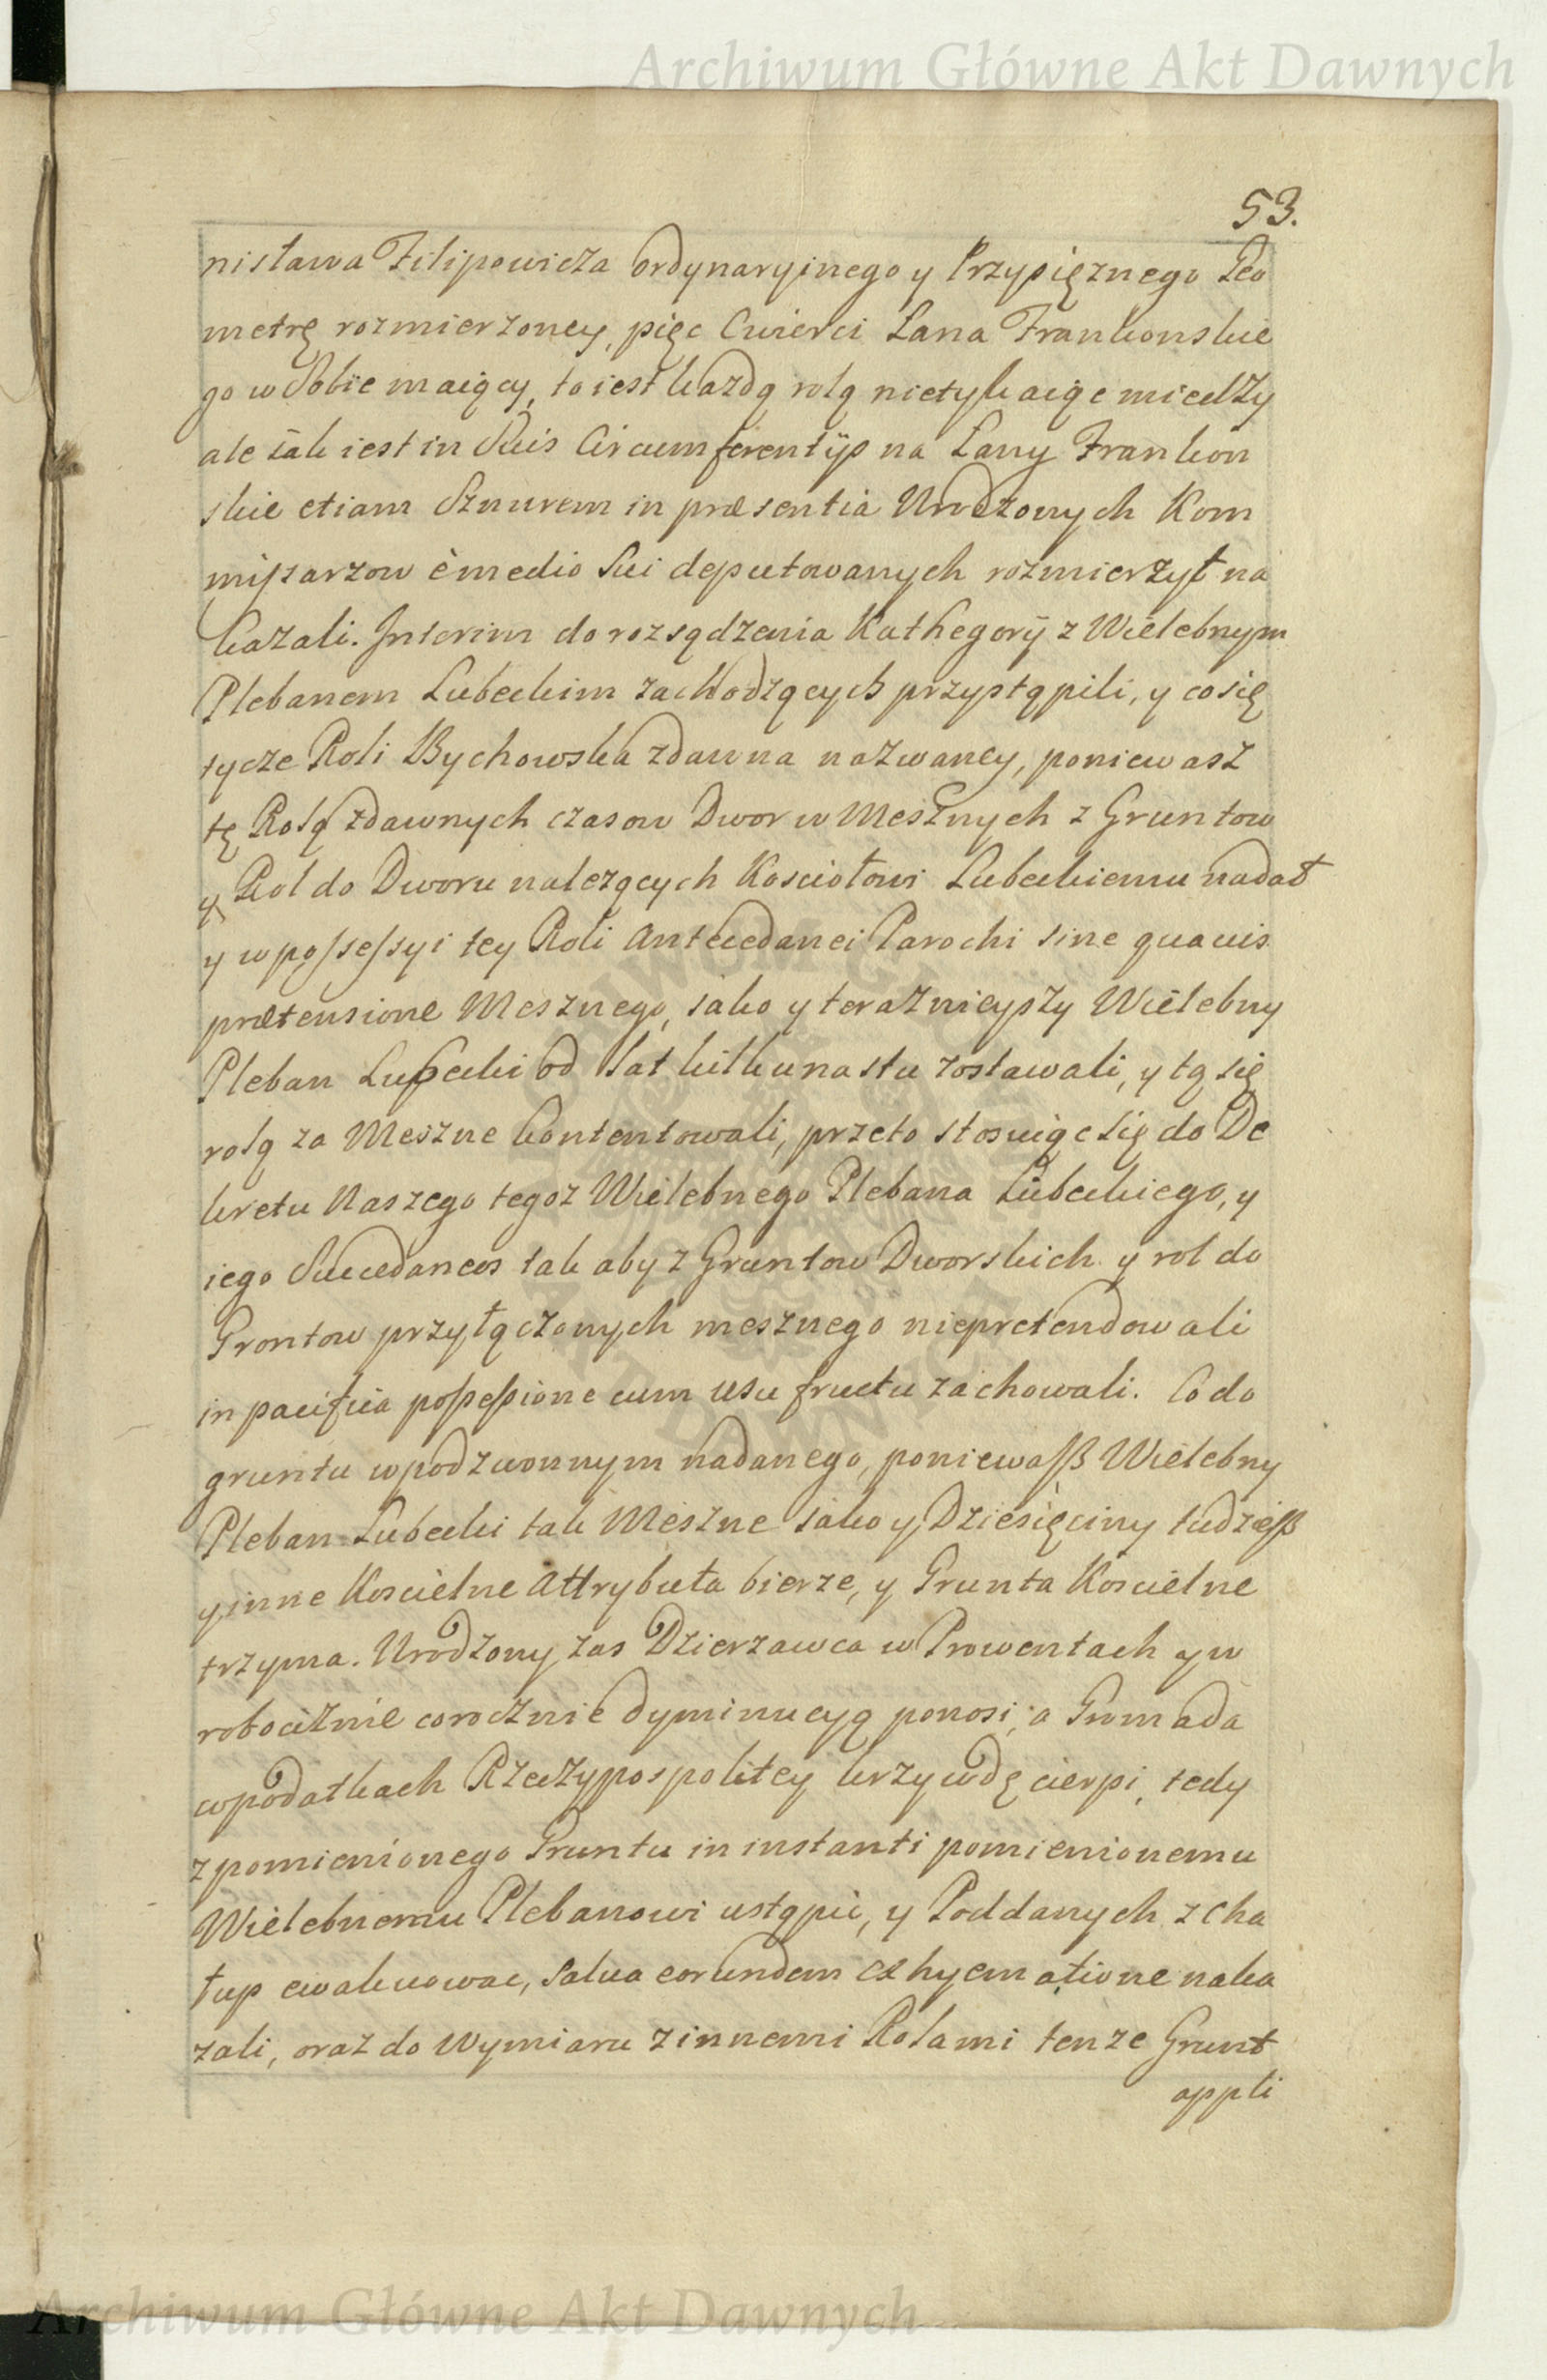 Archiwum Główne Akt Dawnych
53.
nisława Filipowicza ordynaryjnego y Przysięznego Geo
metrę rozmierzoney, pięc Cwierci Łana Frankonskie
go w Sobie maiący, to iest kazdą rolą nietykaiąc miedzy
ale iak iest in Suis Circumferentijs na Łany Frankon
skie etiam Sznurem in præsentia Urodzonych Kom
missarzow è medio Sui deputowanych rozmierzyć na
kazali. Interim do rozsądzenia Kathegoryi z Wielebnym
Plebanem Lubeckim zachodzących przystąpili, y co się
tycze Roli Bychowska zdawna nazwaney, poniewasz
tę Rolą zdawnych czasow Dwor w Mesznych z Gruntow
y Rol do Dworu nalezących Kosciołowi Lubeckiemu nadał
y w possessyi tey Roli Antecedanei Parochi sine quavis
prætensione Mesznego, iako y teraznieyszy Wielebny
Pleban Lubecki od lat kilkunastu zostawali, y tą się
rolą za Meszne kontentowali, przeto stosuiąc się do De
kretu Naszego tegoz Wielebnego Plebana Lubeckiego, y
iego Succedaneos tak aby z Gruntow Dworskich y rol do
Grontow przyłączonych mesznego niepretendowali
in pacifica possessione cum usu fructu zachowali. Co do
gruntu w podzwonnym nadanego, poniewasz Wielebny
Pleban Lubecki tak Meszne iako y Dziesięciny tudziesz
y inne Koscielne Attrybuta bierze, y Grunta Koscielne
trzyma. Urodzony zas Dzierzawca w Prowentach y w
robociznie corocznie dyminucyą ponosi, a Gromada
w podatkach Rzeczypospolitey krzywdę cierpi, tedy
z pomienionego Gruntu in instanti pomienionemu
Wielebnemu Plebanowi ustąpić, y Poddanych z Cha
łup ewakuowac, salva eorundem exhyematione naka
zali, oraz do Wymiaru z innemi Rolami tenze Grunt
appli
Archiwum Główne Akt Dawnych